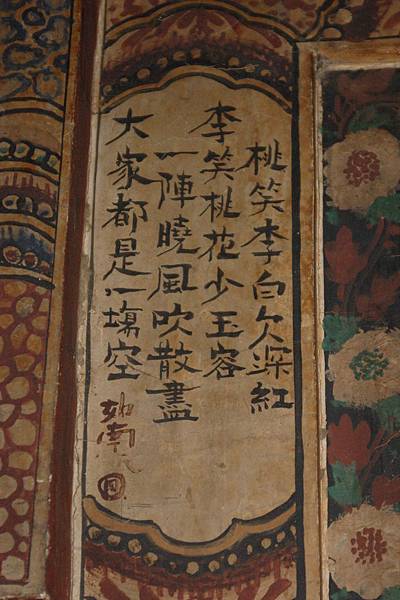 桃笑李白欠深紅
李笑桃花少玉容
一陣曉風吹散盡
大家都是一場空